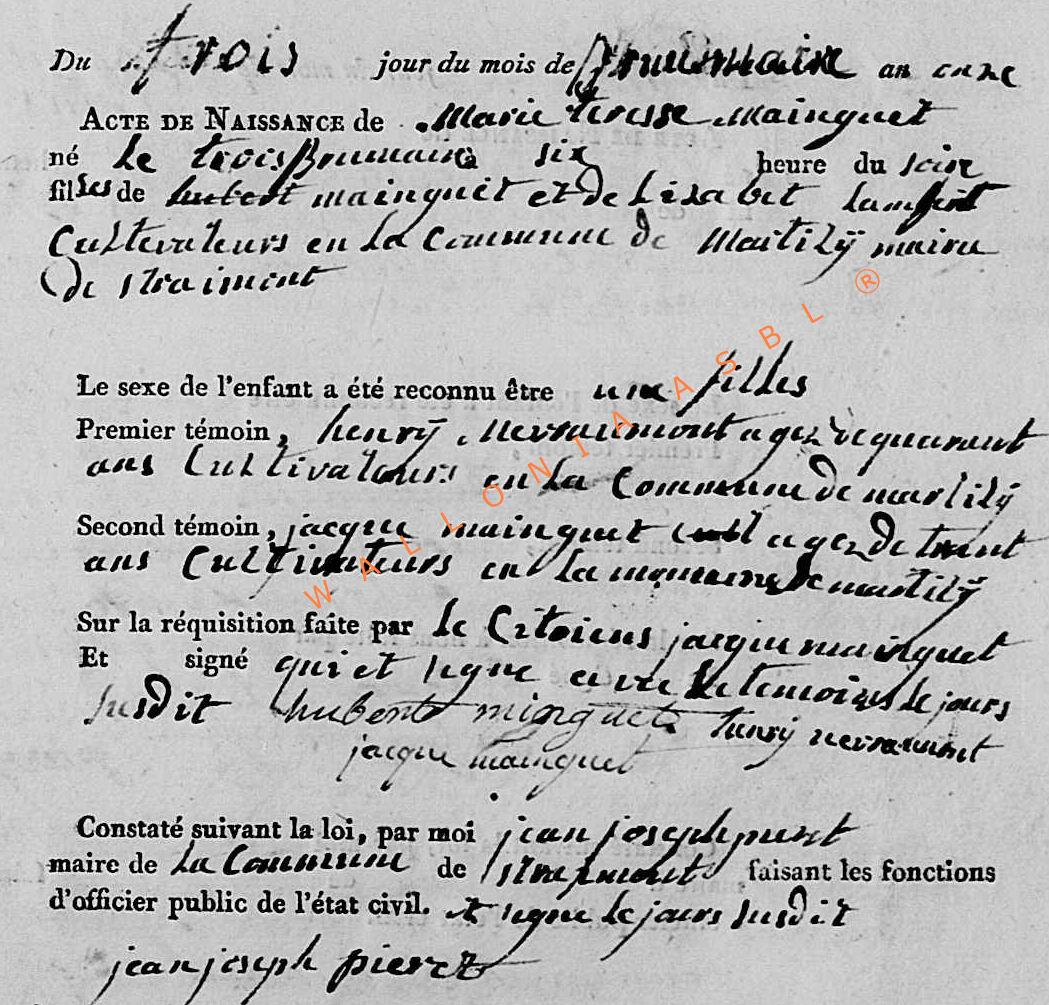 Du trois jour du mois de Brumaire an onze
ACTE DE NAISSANCE de Marie teresse Mainguet
né le trois Brumaire à six heure du soire
filles de hubert mainguet et de Lisabet Lambert
Cultivateurs en la Commune de Martilÿ mairie
de straimont
Le sexe de l'enfant a été reconnu être une filles
Premier témoin, henrÿ agez de quarant
ans Cultivateurs en la Commune de martilÿ
Second témoin, jacque mainguet agez de trent
ans Cultivateurs en la de martilÿ
Sur la réquisition faite par le Citoiens jacque mainguet
Et signé qui et signe avec le temoins le jours
susdit hubert minguet henrÿ
jacque mainguet
Constaté suivant la loi, par moi jean joseph
maire de la Commune de straimont faisant les fonctions
d'officier public de l'état civil. et signe le jours susdit
jean joseph pieret
WALLONIA ASBL ®